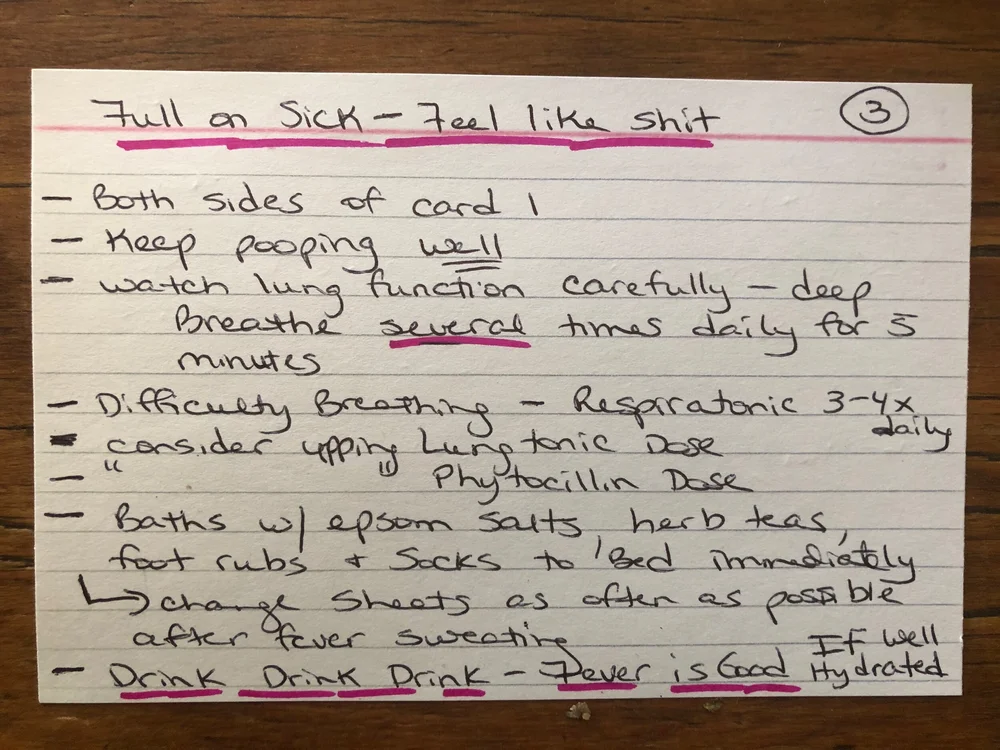 Full on Sick - Feel like shit 3
- Both sides of card 1
- Keep pooping well
- watch lung function carefully - deep
Breathe several times daily for 5
minutes
- Difficulty Breathing - Respiratonic 3-4x
daily
- consider upping Lungtonic Dose
- " " Phytocillin Dose
- Baths w/ epsom salts, herb teas,
foot rubs & Socks to Bed immediately
↳ change sheets as often as possible
after fever sweating
- Drink Drink Drink - Fever is Good If well
Hydrated